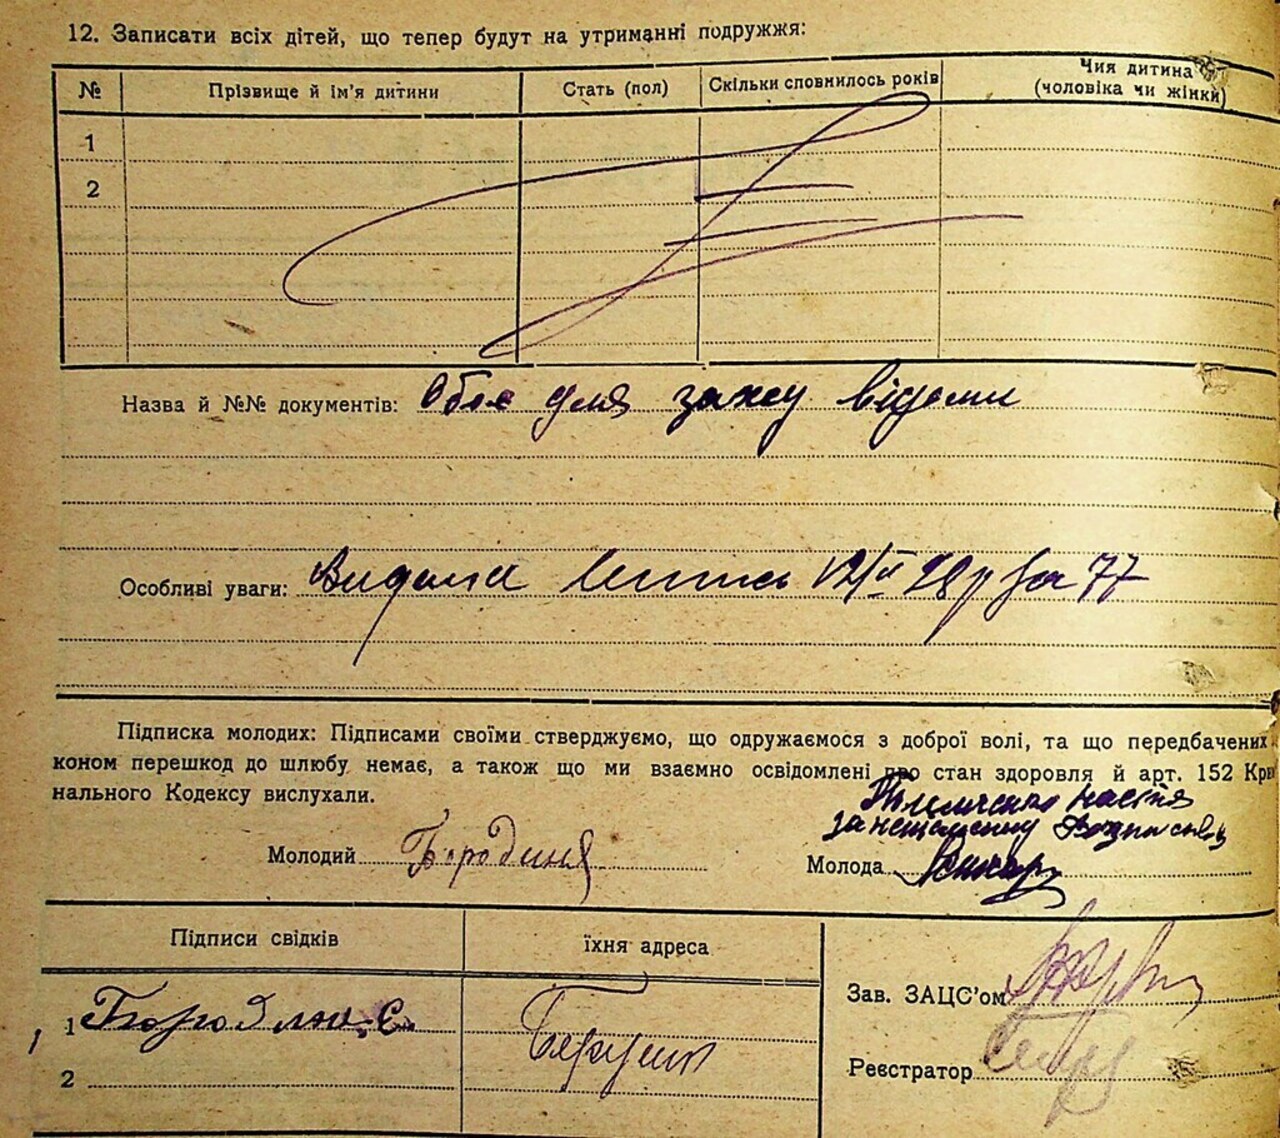 12. Записати всіх дітей, що тепер будут на утриманні подружжя:
№ Прізвище й ім'я дитини Стать (пол) Скільки сповнилось років Чия дитина (чоловіка чи жінки)
1
2
Назва й №№ документів: Обоє для загсу відоми
Особливі уваги: Видана 12/II 28 р за 77
Підписка молодих: Підписами своїми стверджуємо, що одружаємося з доброї волі, та що передбачених
коном перешкод до шлюбу немає, а також що ми взаємно освідомлені про стан здоровля й арт. 152 Кри
нального Кодексу вислухали.
настя
за неписьменну
Молодий Бородиня Молода
Підписи свідків їхня адреса
Зав. ЗАЦС'ом
1
Реєстратор
2